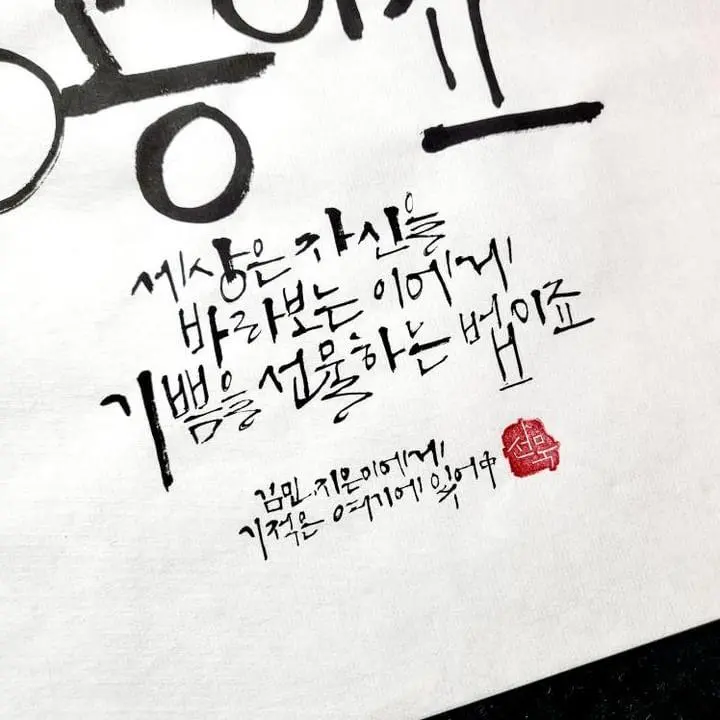 세상은 자신을
바라보는 이에게
기쁨을 선물하는 법이죠
김민.지은이에게
기적은 여기에 있어 中